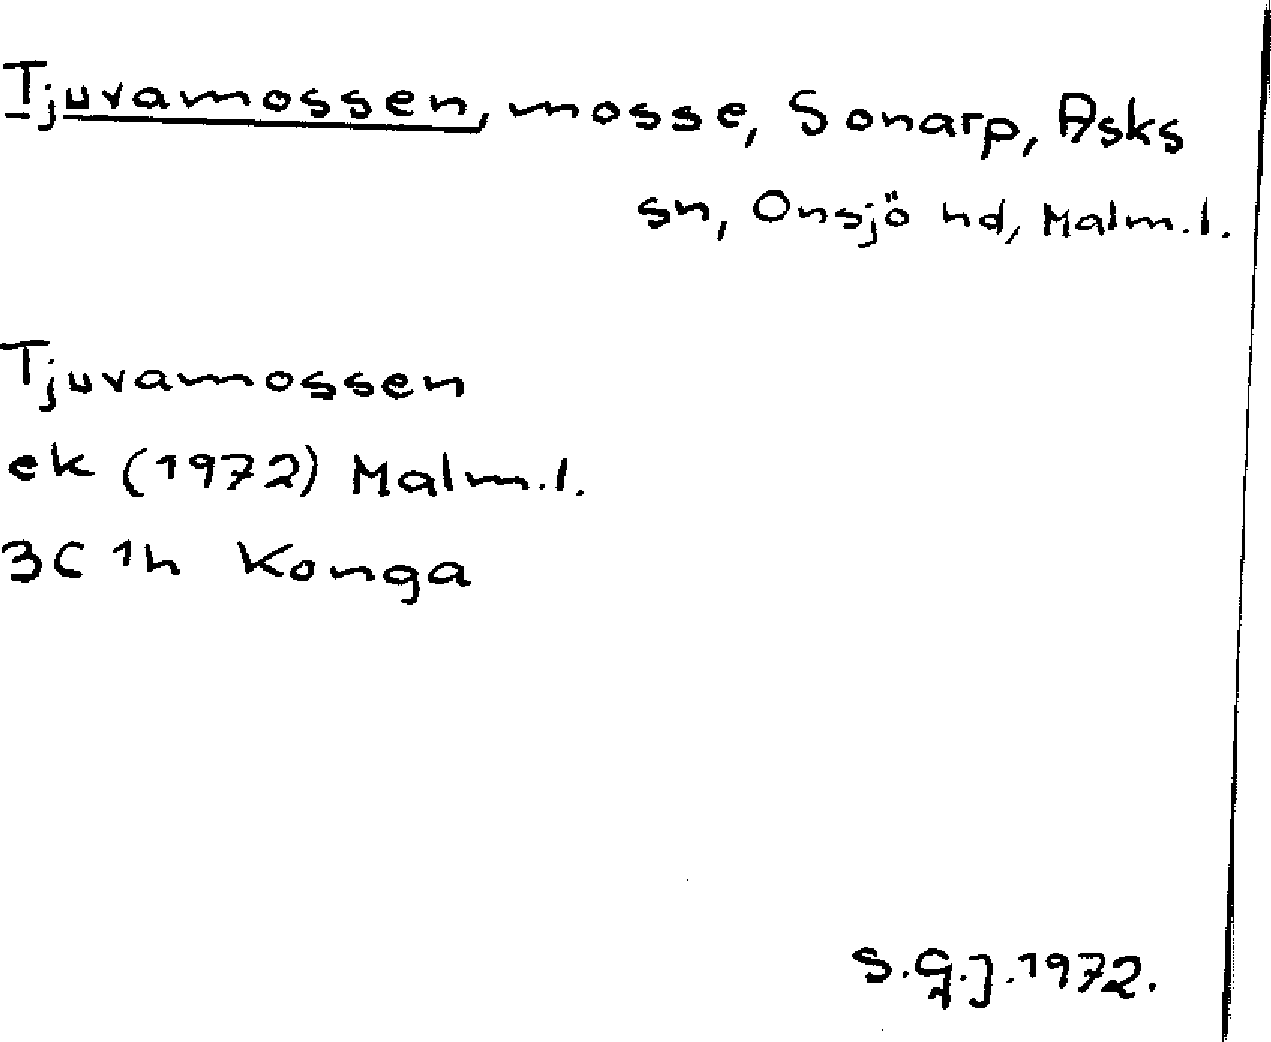 Tjuvamossen, mosse, Sonarp, Asks
sn, Onsjö hd, Malm.l.
Tjuvamossen
ek (1972) Malm.l.
3C 1h Konga
S.G.J.1972.